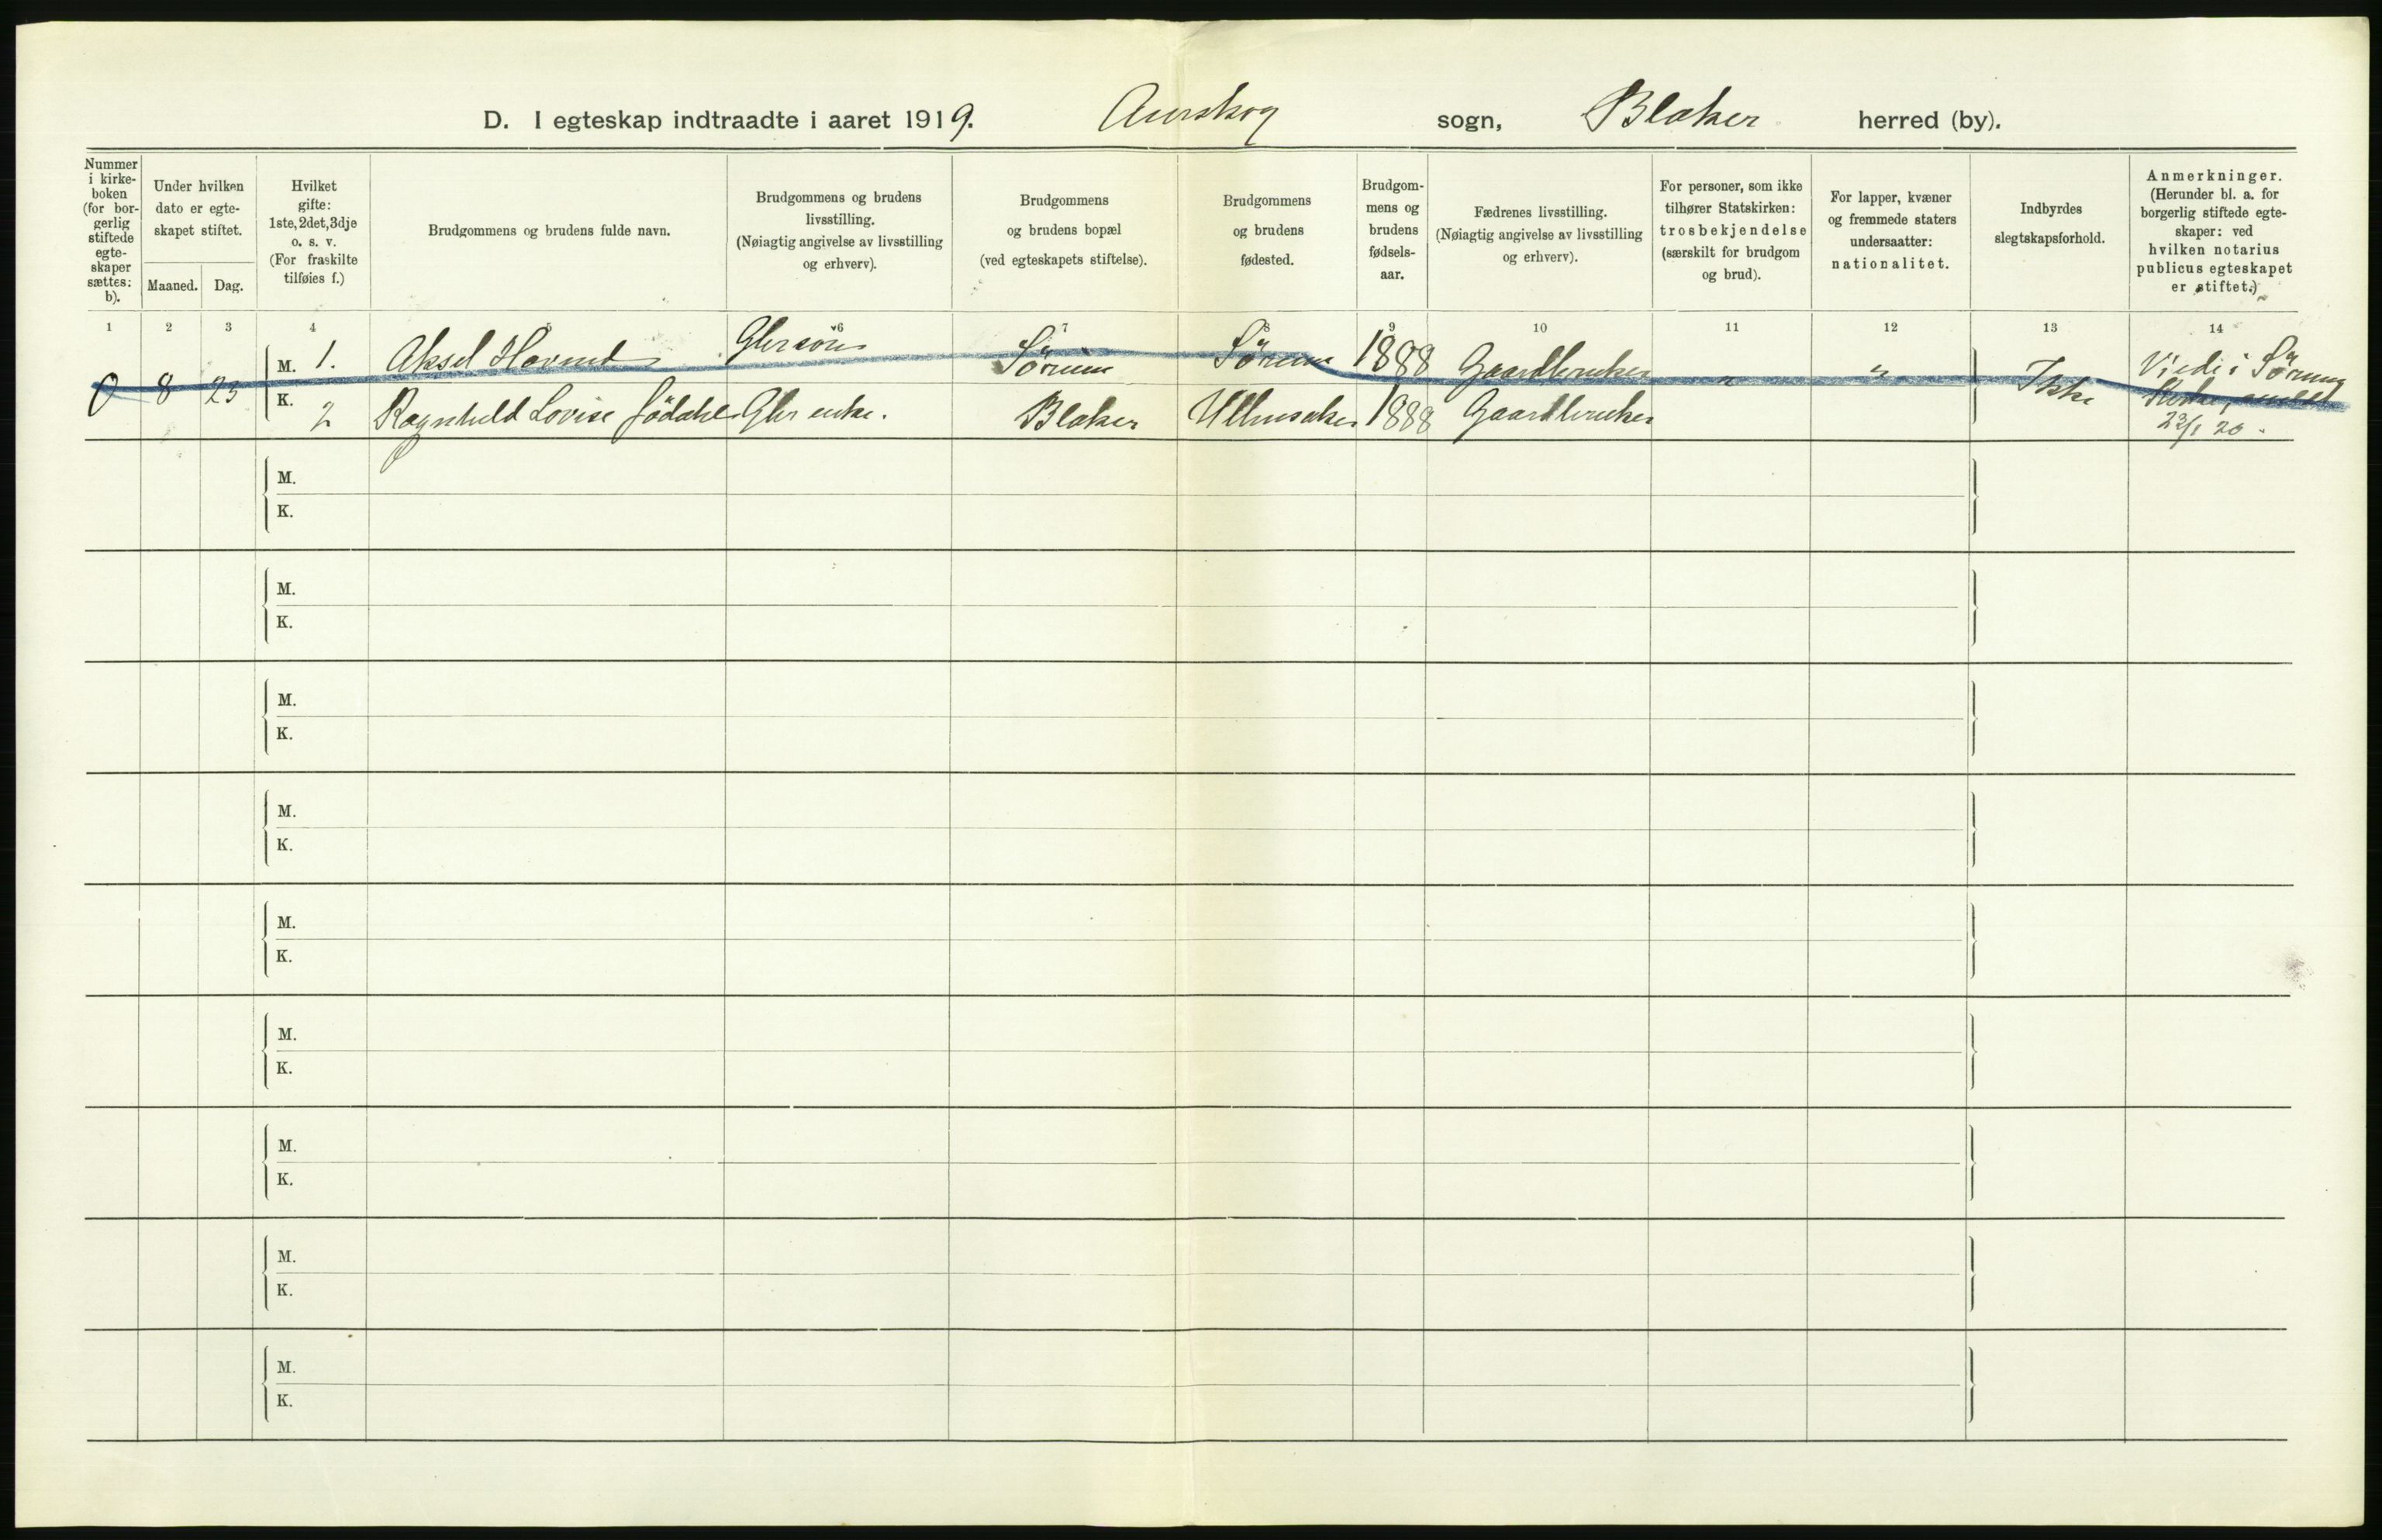 D. I egteskap indtraadte i aaret 1919. Aurskog sogn, Blaker herred (by).
Nummer i kirke- boken (for bor- gerlig stiftede egte- skaper sættes: b).
Under hvilken dato er egte- skapet stiftet.
Maaned. Dag.
Hvilket gifte: 1ste, 2det, 3dje o. s. v. (For fraskilte tilføies f.)
Brudgommens og brudens fulde navn.
Brudgommens og brudens livsstilling. (Nøiagtig angivelse av livsstilling og erhverv).
Brudgommens og brudens bopæl (ved egteskapets stiftelse).
Brudgommens og brudens fødested.
Brudgom- mens og brudens fødsels- aar.
Fædrenes livsstilling. (Nøiagtig angivelse av livsstilling og erhverv).
For personer, som ikke tilhører Statskirken: trosbekjendelse (særskilt for brudgom og brud).
For lapper, kvæner og fremmede staters undersaatter: nationalitet.
Indbyrdes slegtskapsforhold.
Anmerkninger. (Herunder bl. a. for borgerlig stiftede egte- skaper: ved hvilken notarius publicus egteskapet er stiftet.)
1 2 3 4 5 6 7 8 9 10 11 12 13 14
0 8 23 M. 1. Aksel Sørum Sørum 1888 Gaardbruker " " Ikke Viedi i Sørum
K. 2 Ragnhild Lovise Gbr enke. Blaker Ullensaker 1888 Gaardbruker Kirke, anmeldt
22/1 20.
M.
K.
M.
K.
M.
K.
M.
K.
M.
K.
M.
K.
M.
K.
M.
K.
M.
K.